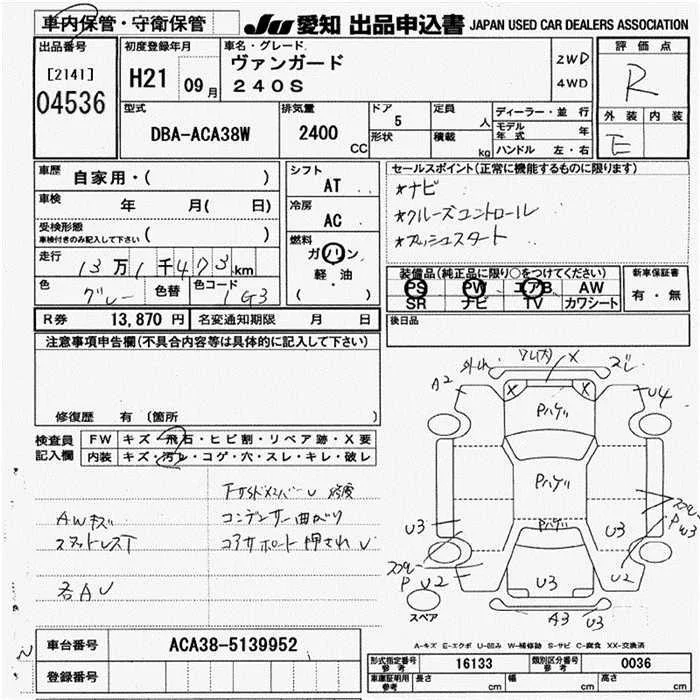 車内保管・守衛保管
JU 愛知 出品申込書 JAPAN USED CAR DEALERS ASSOCIATION
出品番号
[2141]
04536
初度登録年月
H21 09月
車名・グレード
ヴァンガード
240S
2WD
4WD
評価点
R
外装 内装
E
型式
DBA-ACA38W
排気量
2400
CC
ドア
5
形状
定員
人
積載
kg
ディーラー・並行
モデル年式 年
ハンドル 左・右
車歴
自家用・( )
車検
年 月( 日)
受検形態
車検付きのみ記入して下さい ( )
走行
13万1千473km
色
グレー
色替
色コード
1G3
シフト
AT
冷房
AC
燃料
ガソリン
軽・油
( )
セールスポイント(正常に機能するものに限ります)
*ナビ
*クルーズコントロール
*プッシュスタート
装備品(純正品に限り○をつけてください)
PS PW エアB AW
SR ナビ TV カワシート
新車保証書
有・無
後日品
R券 13,870円 名変通知期限 月 日
注意事項申告欄(不具合内容等は具体的に記入して下さい)
修復歴 有 〔箇所 )
検査員
記入欄
FW キズ・飛石・ヒビ割・リペア跡・X要
内装 キズ・汚レ・コゲ・穴・スレ・キレ・破レ
AWキズ
スタットレスT
各AU
FサイドメンバーU
コンデンサー曲がり
コアサポート押されU
X
ズレ
A2
X
X
U4
Pハゲ
Pハゲ
Pハゲ
U3
U3
U3
P U2
U2
P U3
U3
A3
U3
スペア
A-キズ E-エクボ U-凹み W-補修跡 S-サビ C-腐食 XX-交換済
車台番号 ACA38-5139952
登録番号
形式指定番号 参考 16133 類別区分番号 参考 0036
車庫証明用 参考 長さ cm 幅 cm 高さ cm